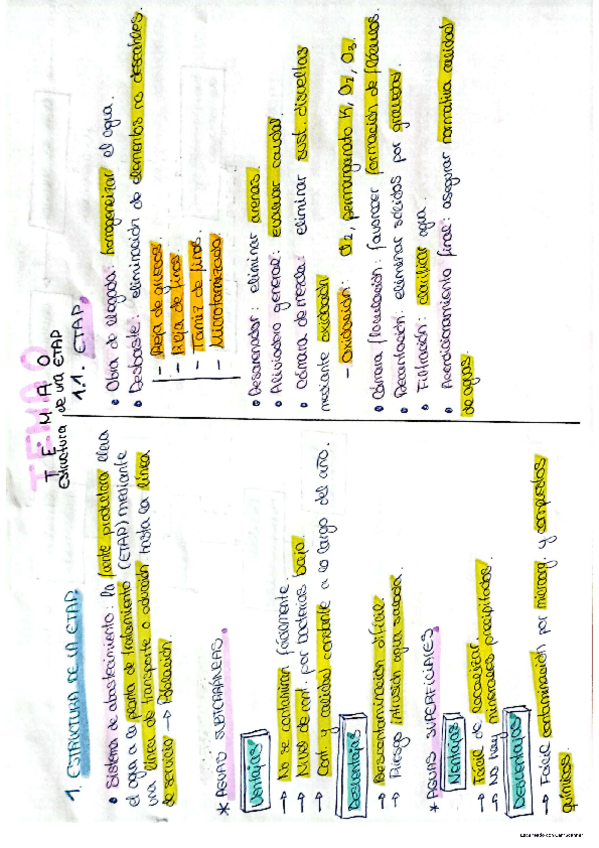 TEMA 0
TEMA 0
estructura de una ETAP
1. ESTRUCTURA DE LA ETAP.
• Sistema de abastecimiento: la fuente productora lleva
el agua a la planta de tratamiento (ETAP) mediante
una línea de transporte o aducción hasta la línea
de servicio → Población.
* AGUAS SUBTERRÁNEAS.
Ventajas
→ No se contaminan fácilmente.
→ Nivel de cont. por bacterias bajo.
→ Cant. y calidad constante a lo largo del año.
Desventajas
→ Descontaminación difícil.
→ Riesgo intrusión agua salada.
* AGUAS SUPERFICIALES.
Ventajas
→ Fácil de localizar.
→ No hay minerales precipitados.
Desventajas
→ Fácil contaminación por microorg. y compuestos
químicos.
1.1. ETAP.
• Obra de llegada: homogeneizar el agua.
• Desbaste: eliminación de elementos no deseables.
- Reja de gruesos.
- Reja de finos.
- Tamiz de finos.
- Microtamizado
• Desarenador: eliminar arenas.
• Aliviadero general: evacuar caudal
• Cámara de mezcla: eliminar sust. disueltas
mediante oxidación
- Oxidación: Cl2, permanganato K, O2, O3.
• Cámara floculación: favorecer formación de flóculos.
• Decantación: eliminar sólidos por gravedad.
• Filtración: clarificar agua.
• Acondicionamiento final: asegurar normativa calidad
de aguas.